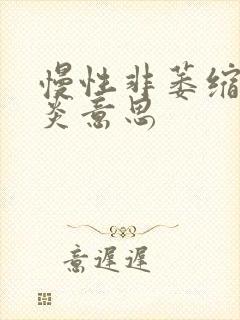 慢性非萎缩
炎意思
意遲遲